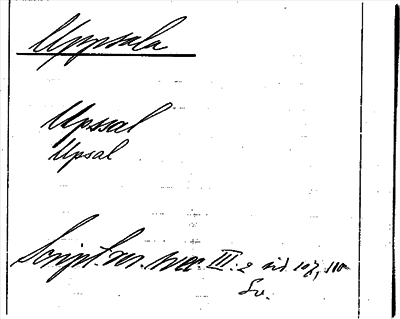 Uppsala
Upssal
Upsal
Script. rer. svec. III: 2 sid 107, 110
Sv.